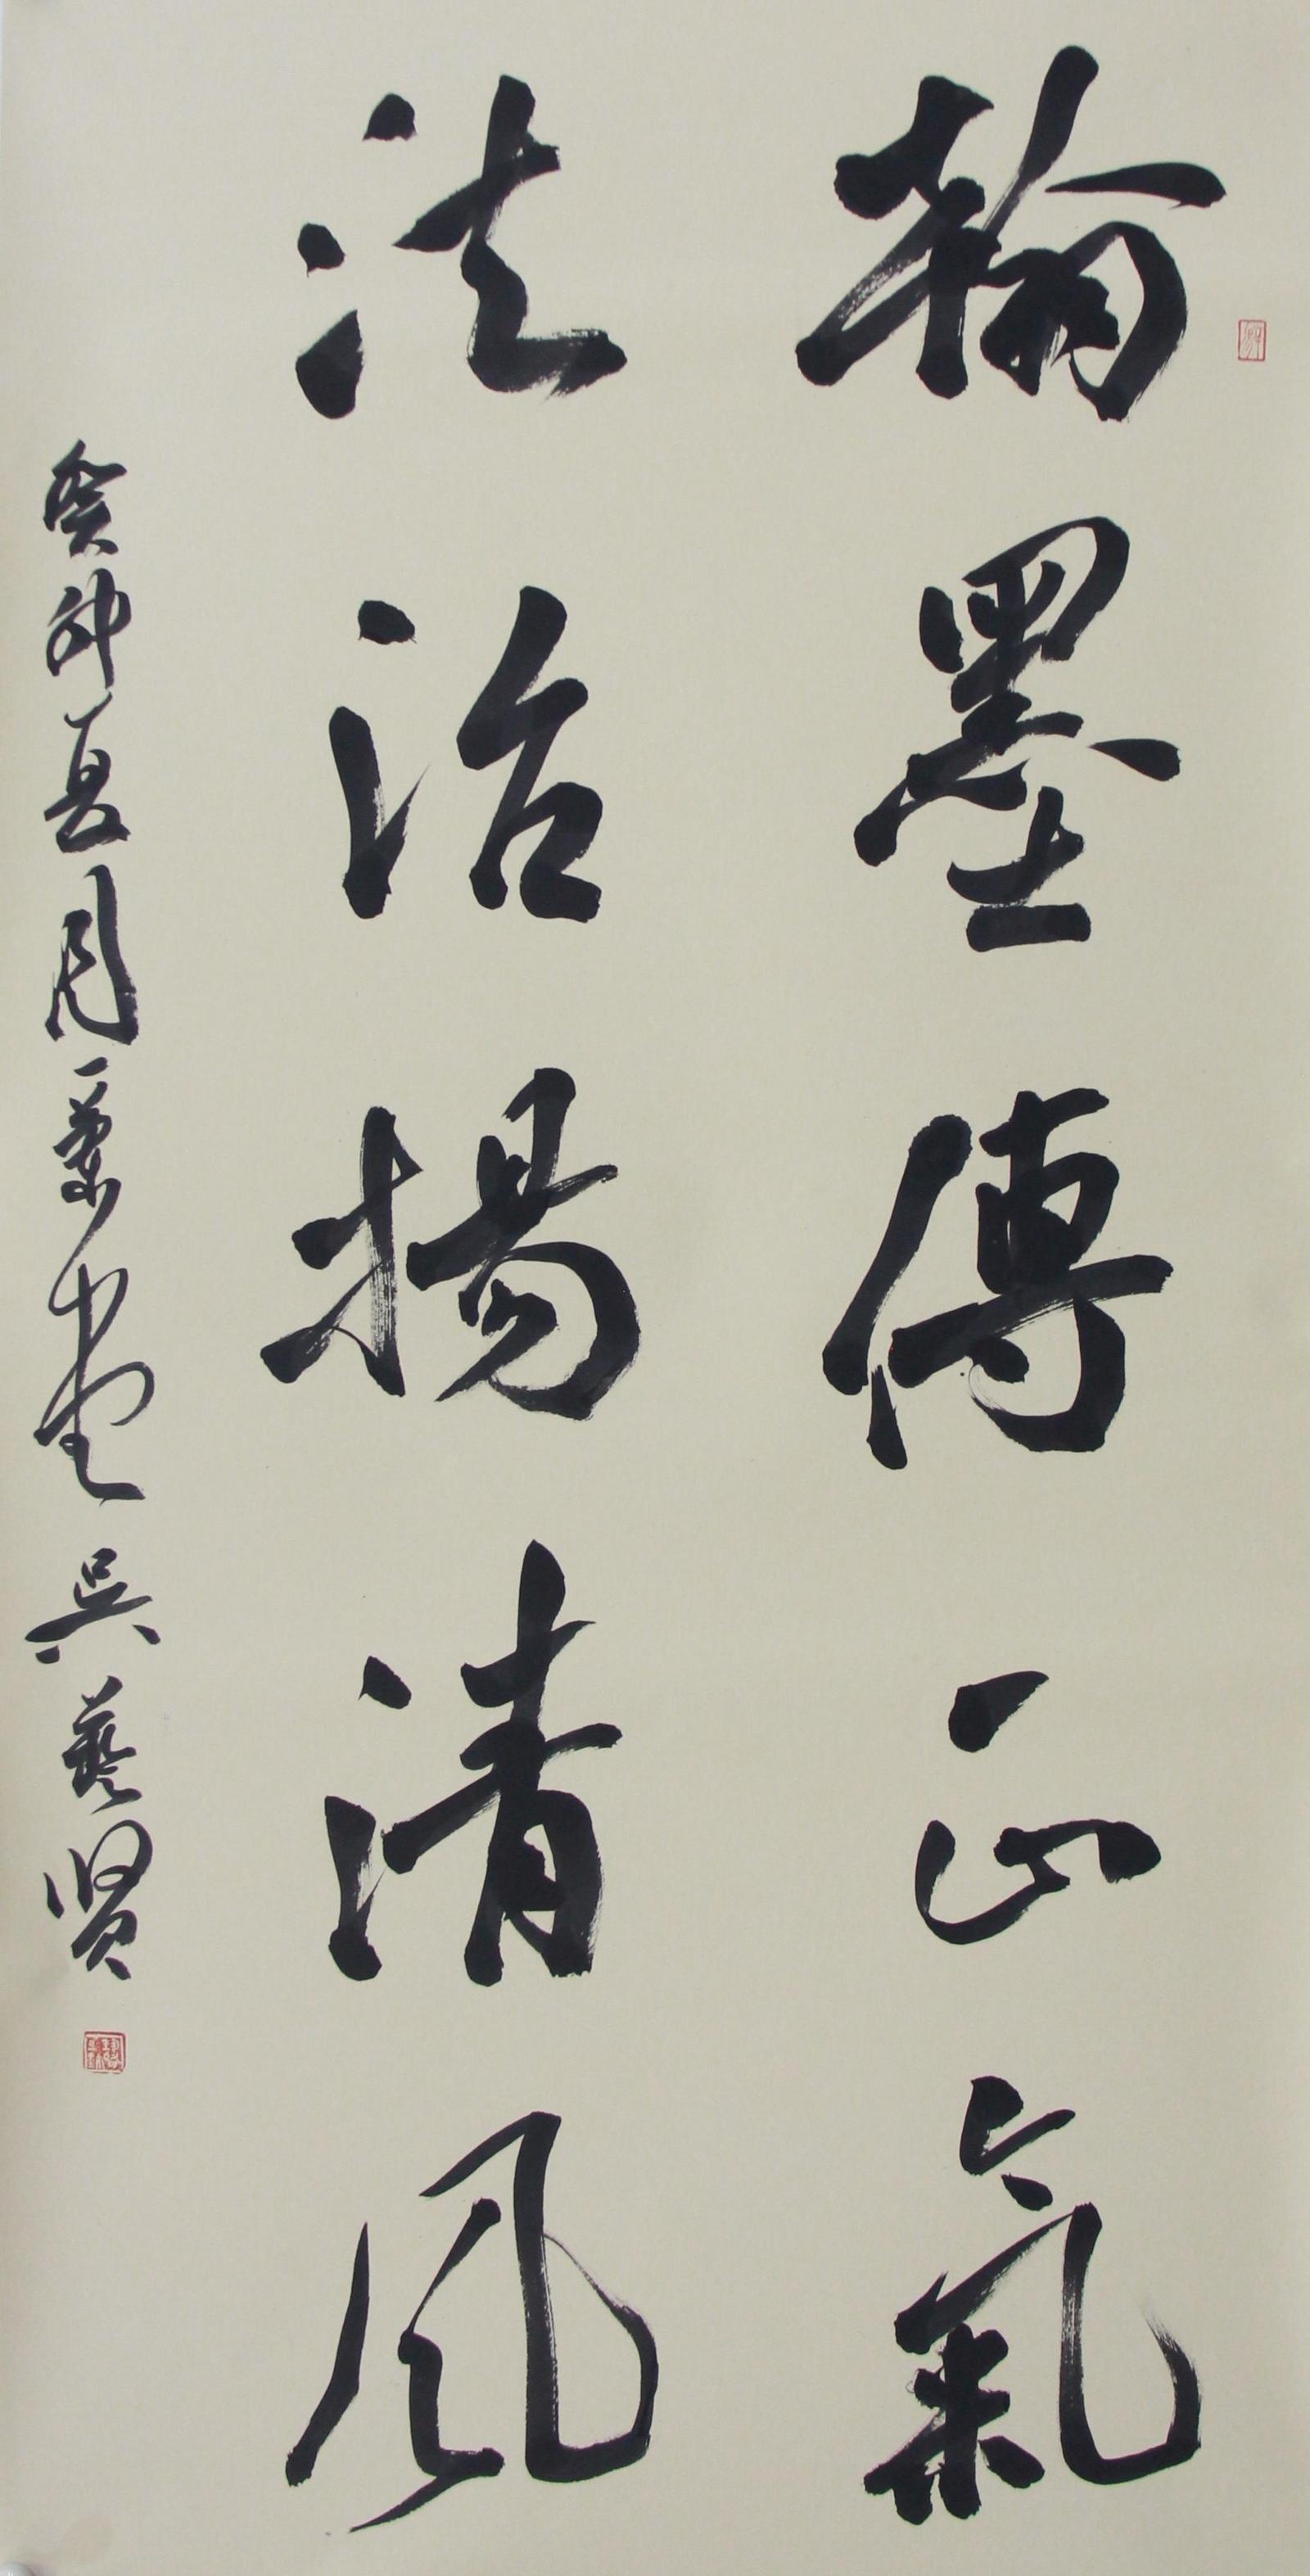 翰墨傳正氣
法治揚清風
癸卯夏月兼堂吳藝賢